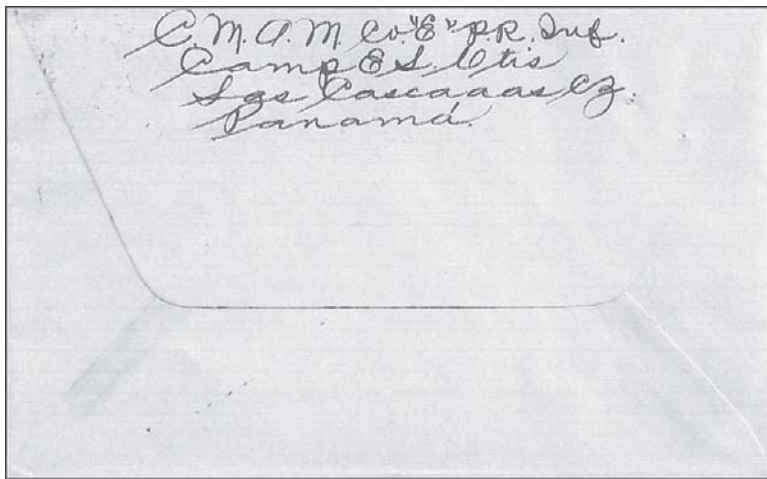 C. M. A. M. Co. "E" P.R. Inf.
Camp E S. Otis
Las Cascadas C Z.
Panamá.